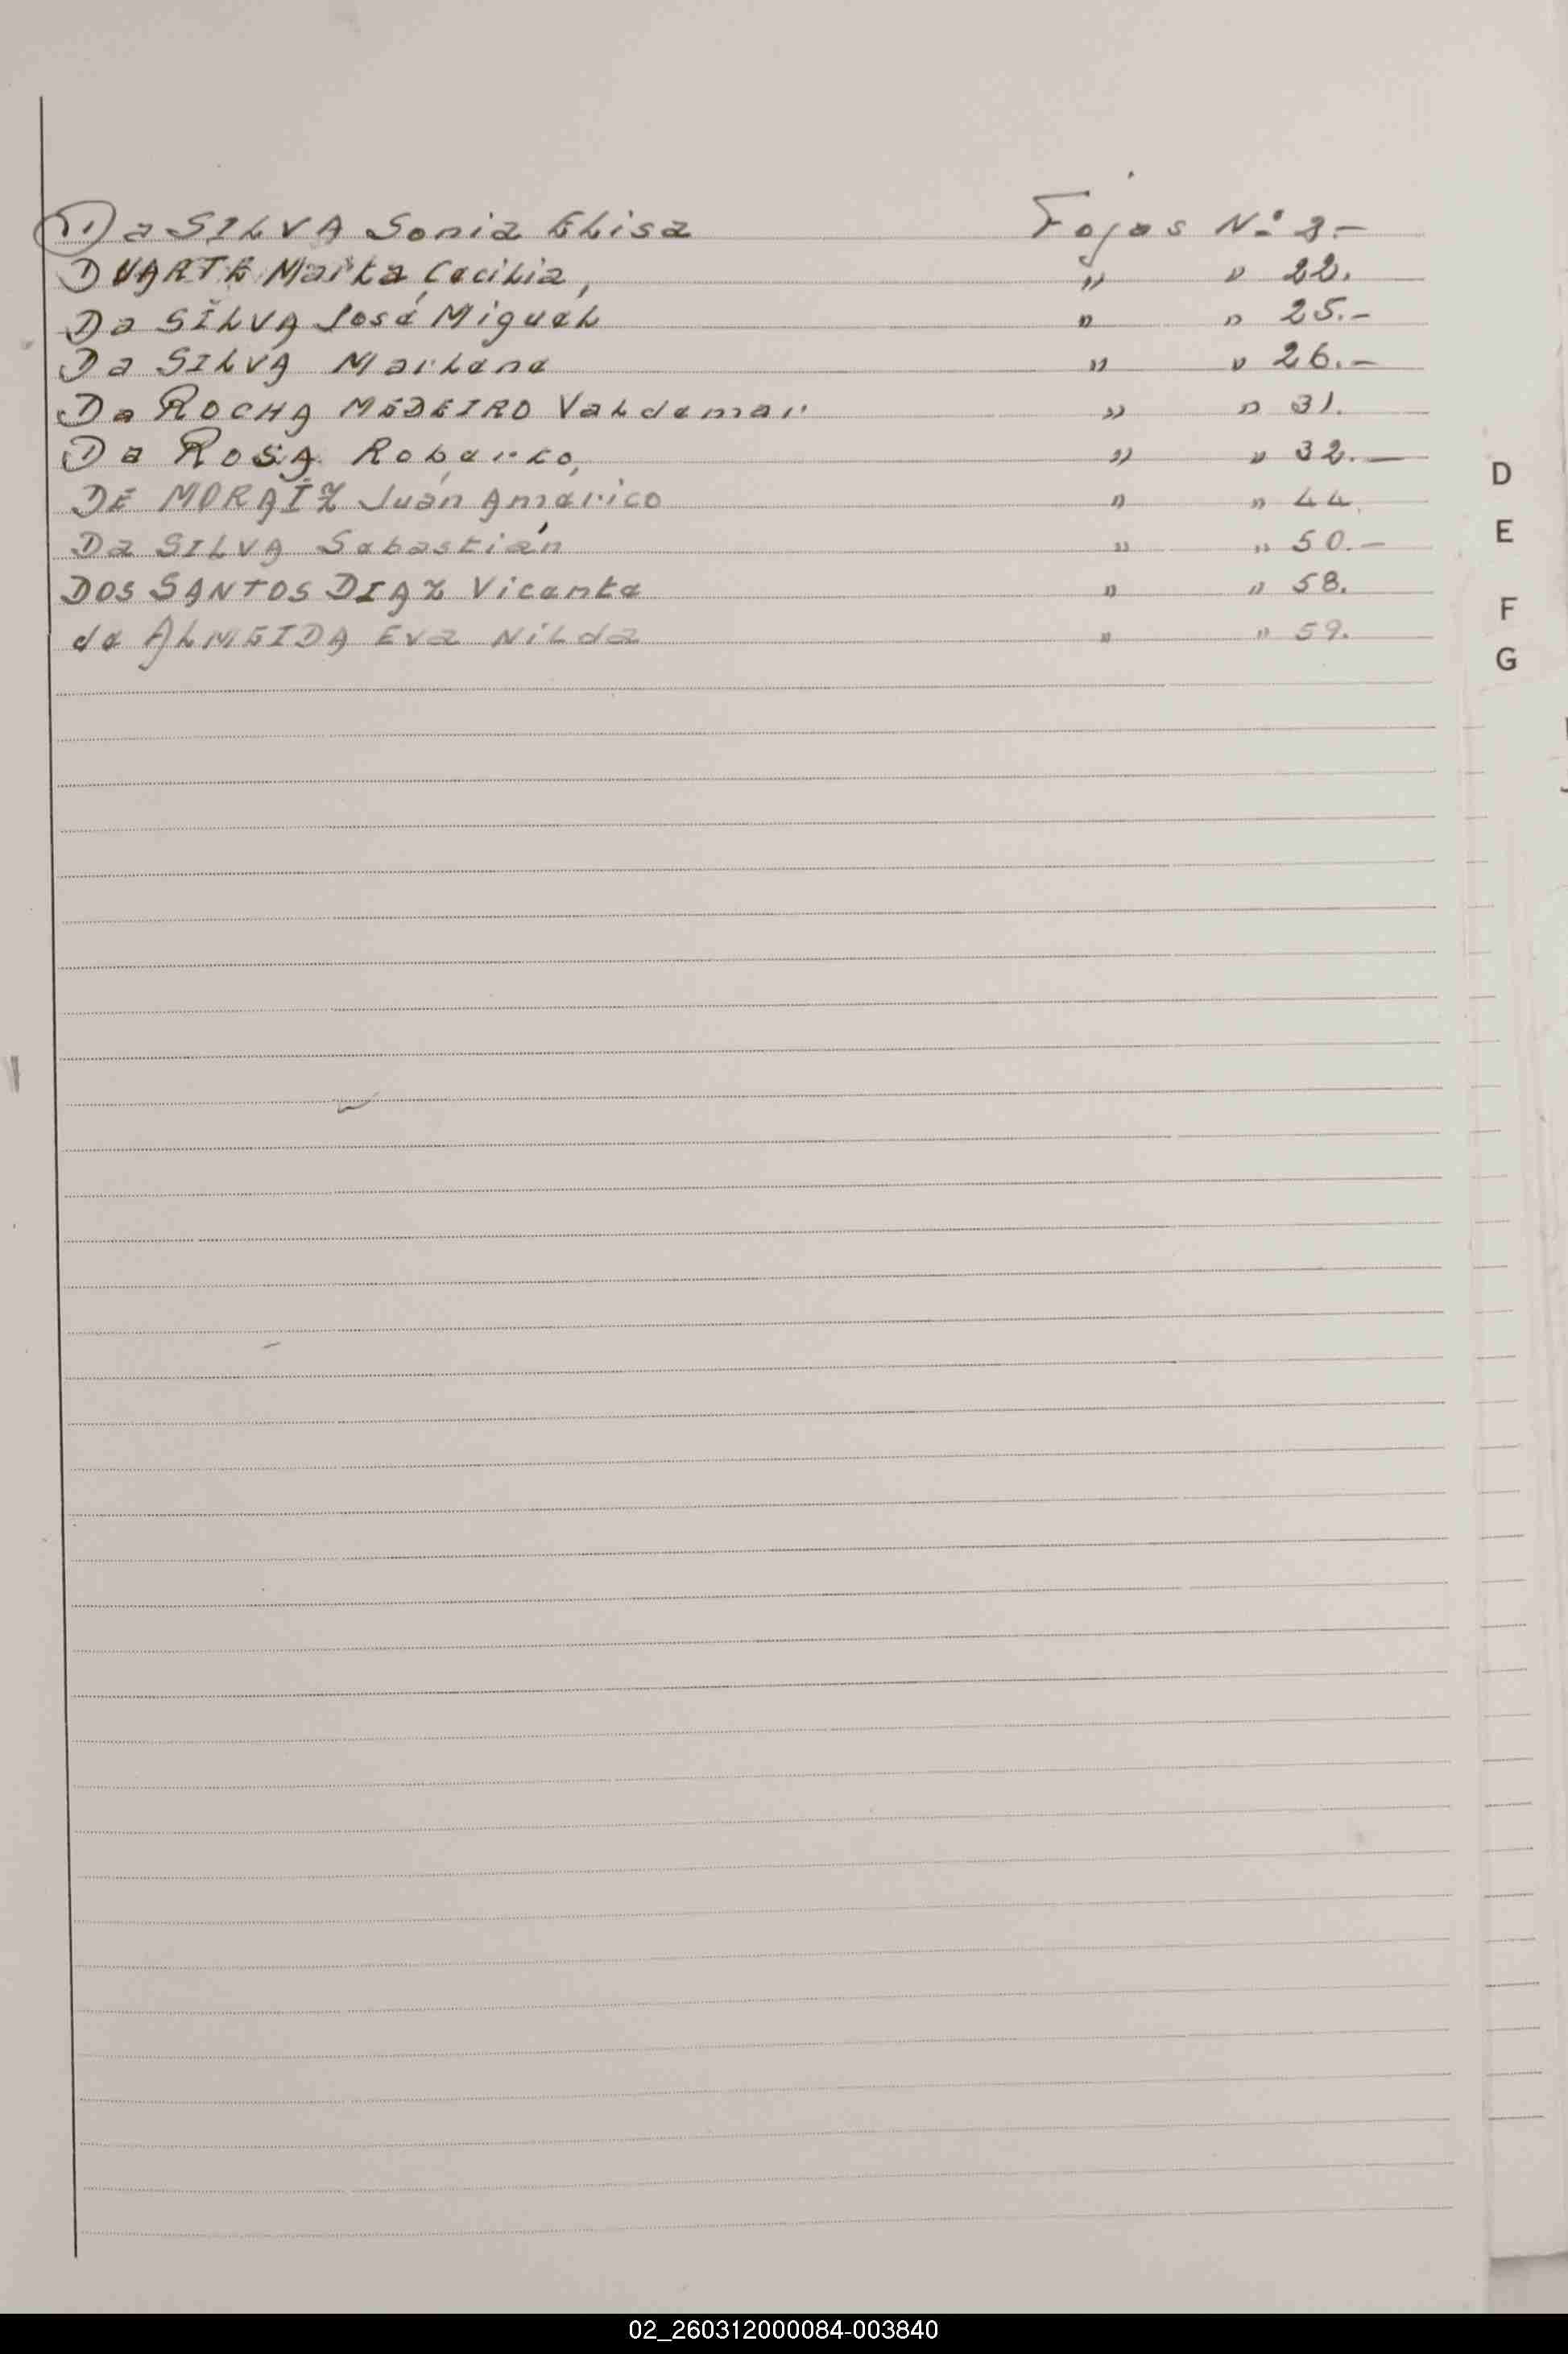 Da SILVA Sonia Elisa Fojas Nº 3.-
DUARTE Marta Cecilia, " " 22.
Da SILVA José Miguel " " 25.-
Da SILVA Marlene " " 26.-
Da ROCHA MEDEIRO Valdemar " " 31.
Da ROSA Roberto, " " 32.-
DE MORAIZ Juan Américo " " 44.
Da SILVA Sebastián " " 50.-
DOS SANTOS DIAZ Vicente " " 58.
de ALMEIDA Eva Nilda " " 59.
D
E
F
G
02_260312000084-003840